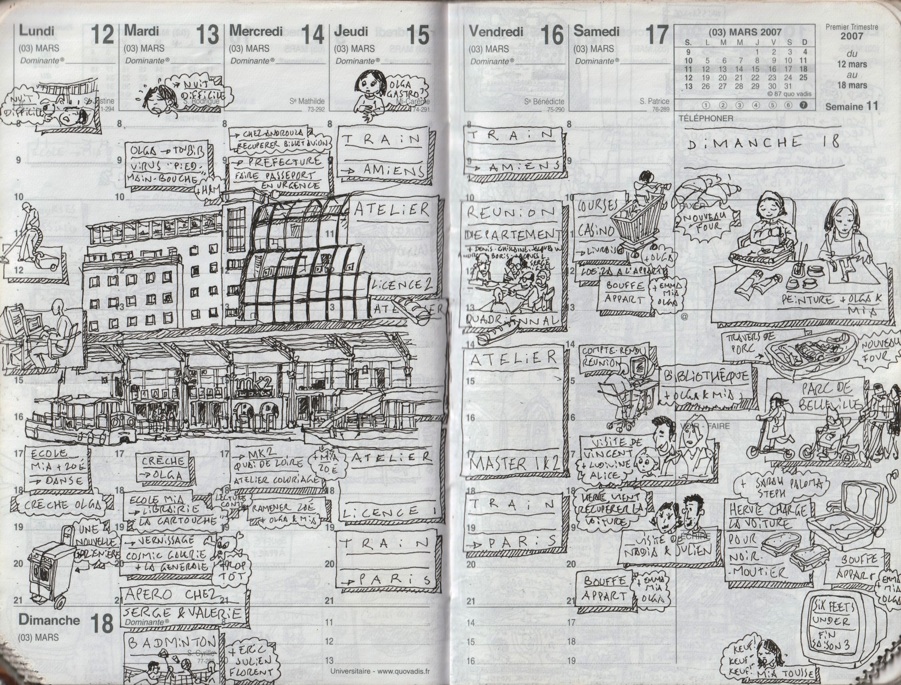 Lundi 12
(03) MARS
Dominante®
Mardi 13
(03) MARS
Dominante®
Mercredi 14
(03) MARS
Dominante®
Jeudi 15
(03) MARS
Dominante®
NUIT
DIFFICILE
NUIT
DIFFICILE
Sᵉ Mathilde
73-292
OLGA
GASTRO?
OLGA → TOUBIB
VIRUS "PIED-
MAIN-BOUCHE"
RECUPERER BILLET AVION
→ PREFECTURE
FAIRE PASSEPORT
EN URGENCE
TRAIN
→ AMIENS
ATELIER
LICENCE 2
ATELIER
mk2
ECOLE
MIA + ZOÉ
→ DANSE
CRÈCHE OLGA
UNE
NOUVELLE
CRÈCHE
→ OLGA
ECOLE MIA
→ LIBRAIRIE
LA CARTOUCHE
→ VERNISSAGE
+ LA GENERALE
TROP
TOT
APERO CHEZ
SERGE & VALERIE
→ MK2
QUAI DE LOIRE
ATELIER COLORIAGE
+ MIA
ZOÉ
RAMENER ZOÉ
+ OLGA & MIA
ATELIER
LICENCE 1
TRAIN
→ PARIS
Dimanche 18
(03) MARS
Dominante®
BADMINTON
+ ERIC
JULIEN
FLORENT
Universitaire - www.quovadis.fr
Vendredi 16
(03) MARS
Dominante®
Samedi 17
(03) MARS
Dominante®
Sᵉ Bénédicte
75-290
S. Patrice
76-289
(03) MARS 2007
S. L M M J V S D
9 1 2 3 4
10 5 6 7 8 9 10 11
11 12 13 14 15 16 17 18
12 19 20 21 22 23 24 25
13 26 27 28 29 30 31
© 87 quo vadis
1 2 3 4 5 6 7
Premier Trimestre
2007
du
12 mars
au
18 mars
Semaine 11
TÉLÉPHONER
DIMANCHE 18
TRAIN
→ AMIENS
REUNION
DEPARTEMENT
QUADRIENNAL
ATELIER
MASTER 1 & 2
TRAIN
→ PARIS
COURSES
CASINO
+ OLGA
BOUFFE
APPART
+ EMMA
MIA
OLGA
NOUVEAU
FOUR
PEINTURE + OLGA &
MIA
@
COMPTE-RENDU
REUNION
BIBLIOTHEQUE
+ OLGA & MIA
TRAVERS DE
PORC
NOUVEAU
FOUR
PARC DE
BELLEVILLE
VISITE DE
VINCENT
& ALICE
RÉCUPÉRER LA
VOITURE
VISITE DE
NADIA & JULIEN
BOUFFE
APPART
+ EMMA
MIA
OLGA
+ SARAH PALOMA
STEPH
HERVÉ CHARGE
LA VOITURE
POUR
NOIR-
MOUTIER
BOUFFE
APPART
+ EMMA
MIA
OLGA
SIX FEETS
UNDER
FIN
SAISON 3
KEUF!
KEUF!
KEUF!
MIA TOUSSE